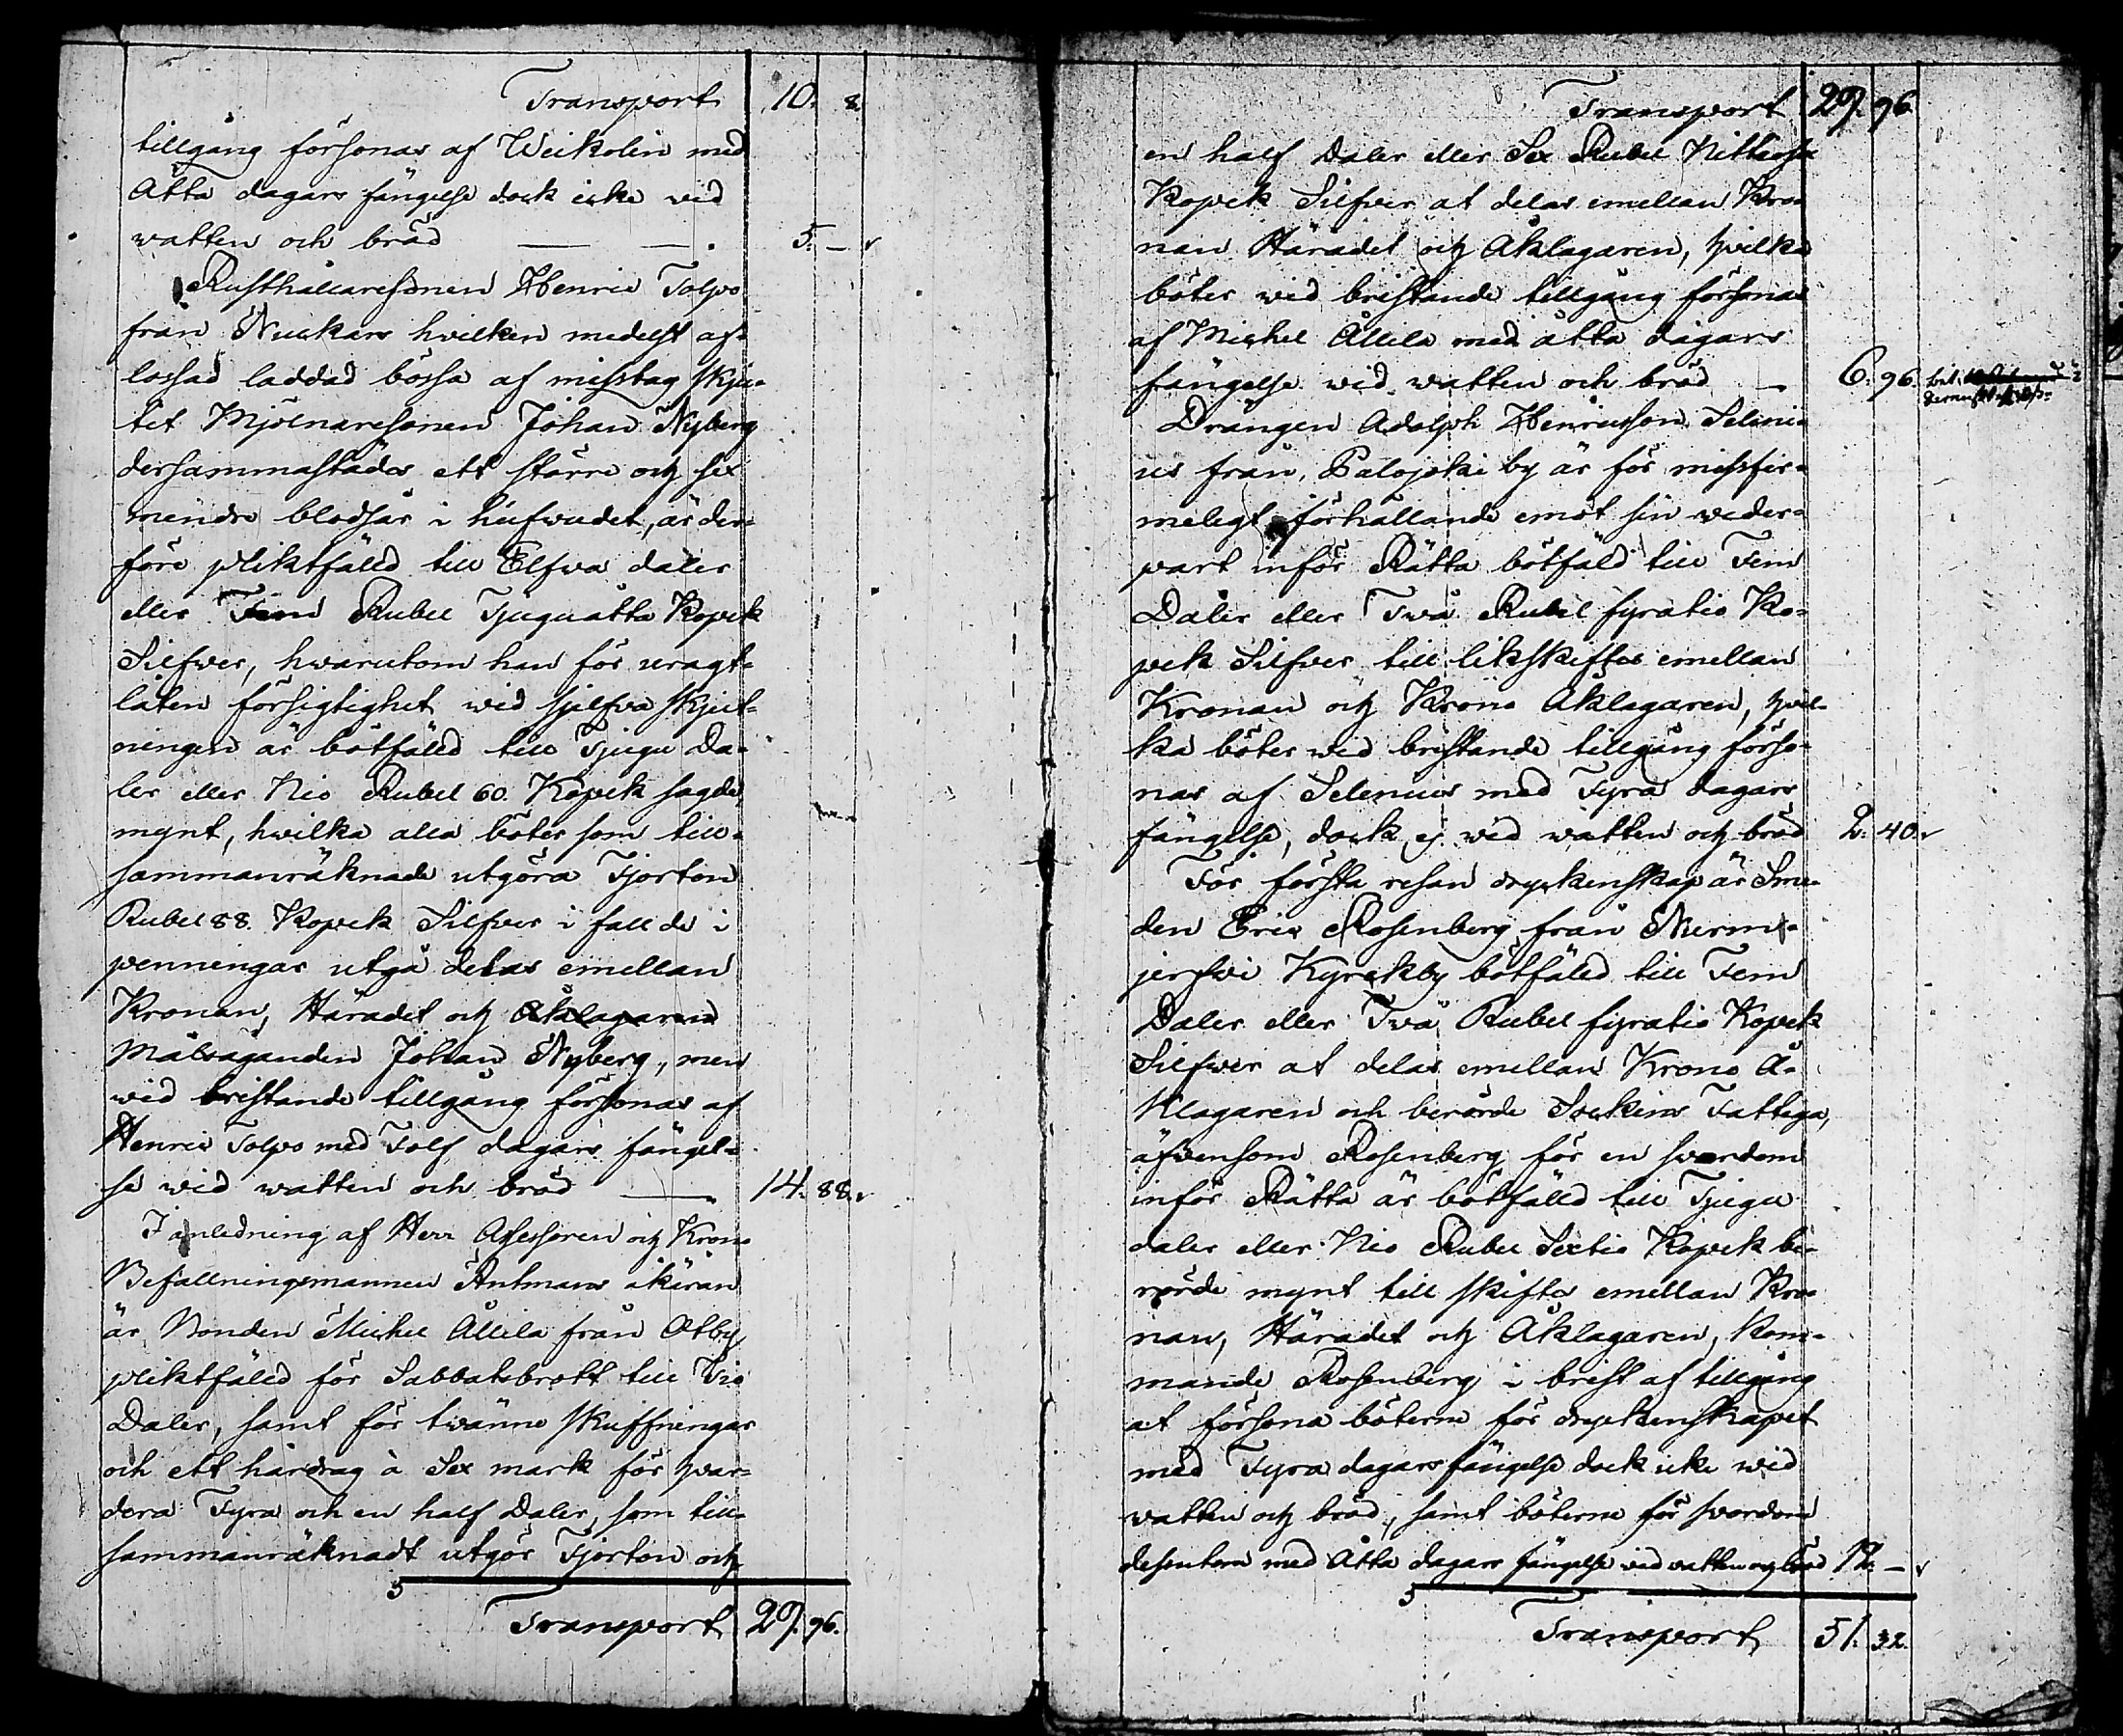 Transport 10. 8.
tillgång försonas af Weikolin med
Åtta dagars fängelse dock icke vid
watten och bröd — — . 5. —
Rusthållaresonen Henric Tolpo
från Nuckars hvilken medelst af-
lossad laddad bössa af misstag skju-
tit Mjölnaresonen Johan Nyberg
dersammastädes ett större och sex
mindre blodsår i hufwudet, är der-
före pliktfälld till Elfwa daler
eller Fem Rubel Tjuguåtta Kopek
Silfwer, hvarutom han för uragt-
låten försigtighet wid sjelfva skjut-
ningen är bötfälld till Tjugu Da-
ler eller Nio Rubel 60. Kopek sagde
mynt, hwilka alla böter som till-
sammanräknade utgöra Fjorton
Rubel 88. Kopek Silfver i fall de i
penningar utgå delas emellan
Kronan, Häradet och Åklagaren
Målsäganden Johan Nyberg, men
wid bristande tillgång försonas af
Henric Tolpo med Tolf dagars fängel-
se wid watten och bröd — 14. 88.
I anledning af Herr Assessoren och Krono
Befallningsmannen Äntmans åkäran
är Bonden Michel Ållila från Otby
pliktfälld för Sabbatsbrott till Tio
Daler, samt för twänne skuffningar
och ett hårdrag à Sex mark för hvar-
dera Fyra och en half Daler, som till-
sammanräknadt utgör Fjorton och
Transport 29. 96.
Transport 29. 96
en half Daler eller Sex Rubel Nittiosex
Kopek Silfver at delas emellan Kro-
nan Häradet och Åklagaren, hvilka
böter wid bristande tillgång försonas
af Michel Ållila med åtta dagars
fängelse wid watten och bröd — 6. 96.
Drängen Adolph Henricsson Seleni-
us från Palojoki by är för missfir-
meligt förhållande emot sin weder-
part inför Rätta bötfäld till Fem
Daler eller Två Rubel fyratio Ko-
pek Silfver till likskiftes emellan
Kronan och Krono Åklagaren, hvil-
ka böter wid bristande tillgång förso-
nas af Selenius med Fyra dagars
fängelse, dock ej wid watten och bröd 2. 40.
För första resan dryckenskap är Sme-
den Eric Rosenberg från Nurmi-
jerfwi Kyrckby bötfälld till Fem
Daler eller Två Rubel fyratio Kopek
Silfwer at delas emellan Krono Å-
klagaren och berörde Sockens Fattiga,
äfwensom Rosenberg för en svordom
inför Rätta är bötfälld till Tjugu
daler eller Nio Rubel Sextio Kopek be-
rörde mynt till skiftes emellan Kro-
nan, Häradet och Åklagaren, kom-
mande Rosenberg i brist af tillgång
at försona böterne för dryckenskapet
med Fyra dagars fängelse dock icke wid
watten och bröd, samt böterne för svordom
dessutom med Åtta dagars fängelse wid watten och bröd 12. —
Transport 51. 32.